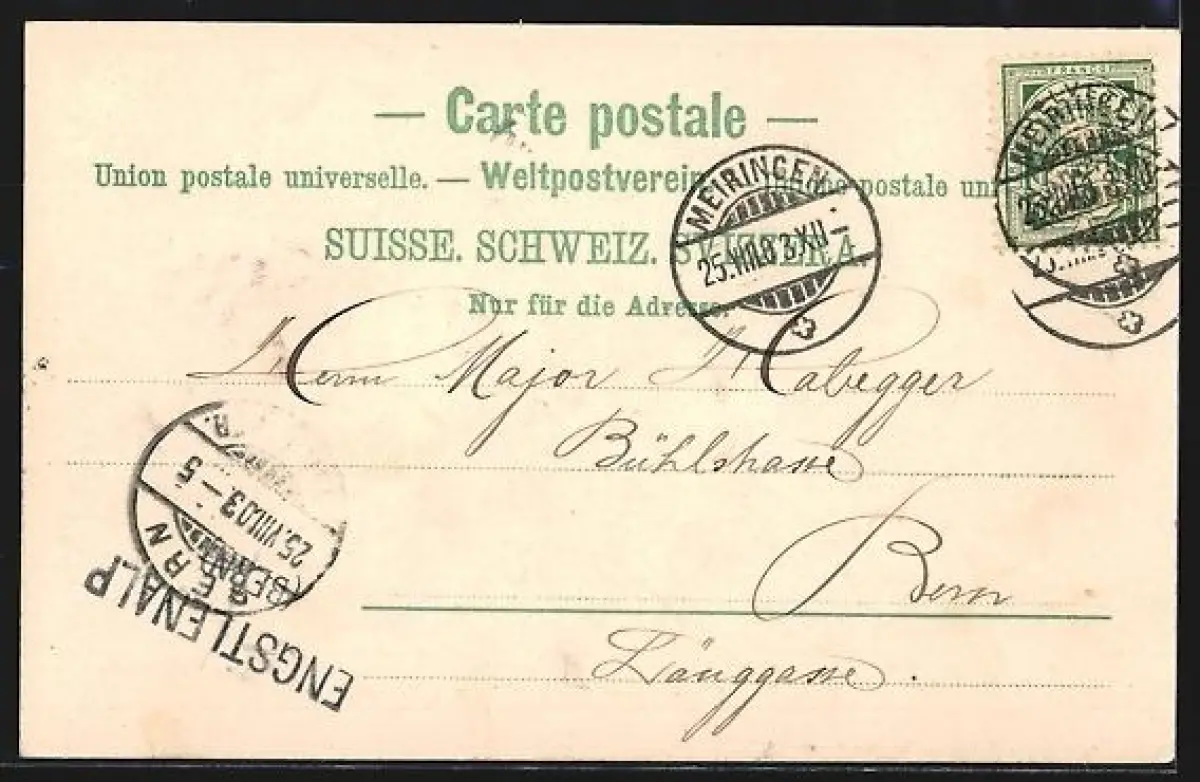 — Carte postale —
Union postale universelle. — Weltpostverein. postale uni
SUISSE. SCHWEIZ. SVIZZERA.
Nur für die Adresse.
FRANCO
MEIRINGEN
25.VIII.03.XII–
MEIRINGEN
Herrn Major Habegger
Bühlstrasse
Bern
Länggasse.
BERN
25.VIII.03–5
ENGSTLENALP